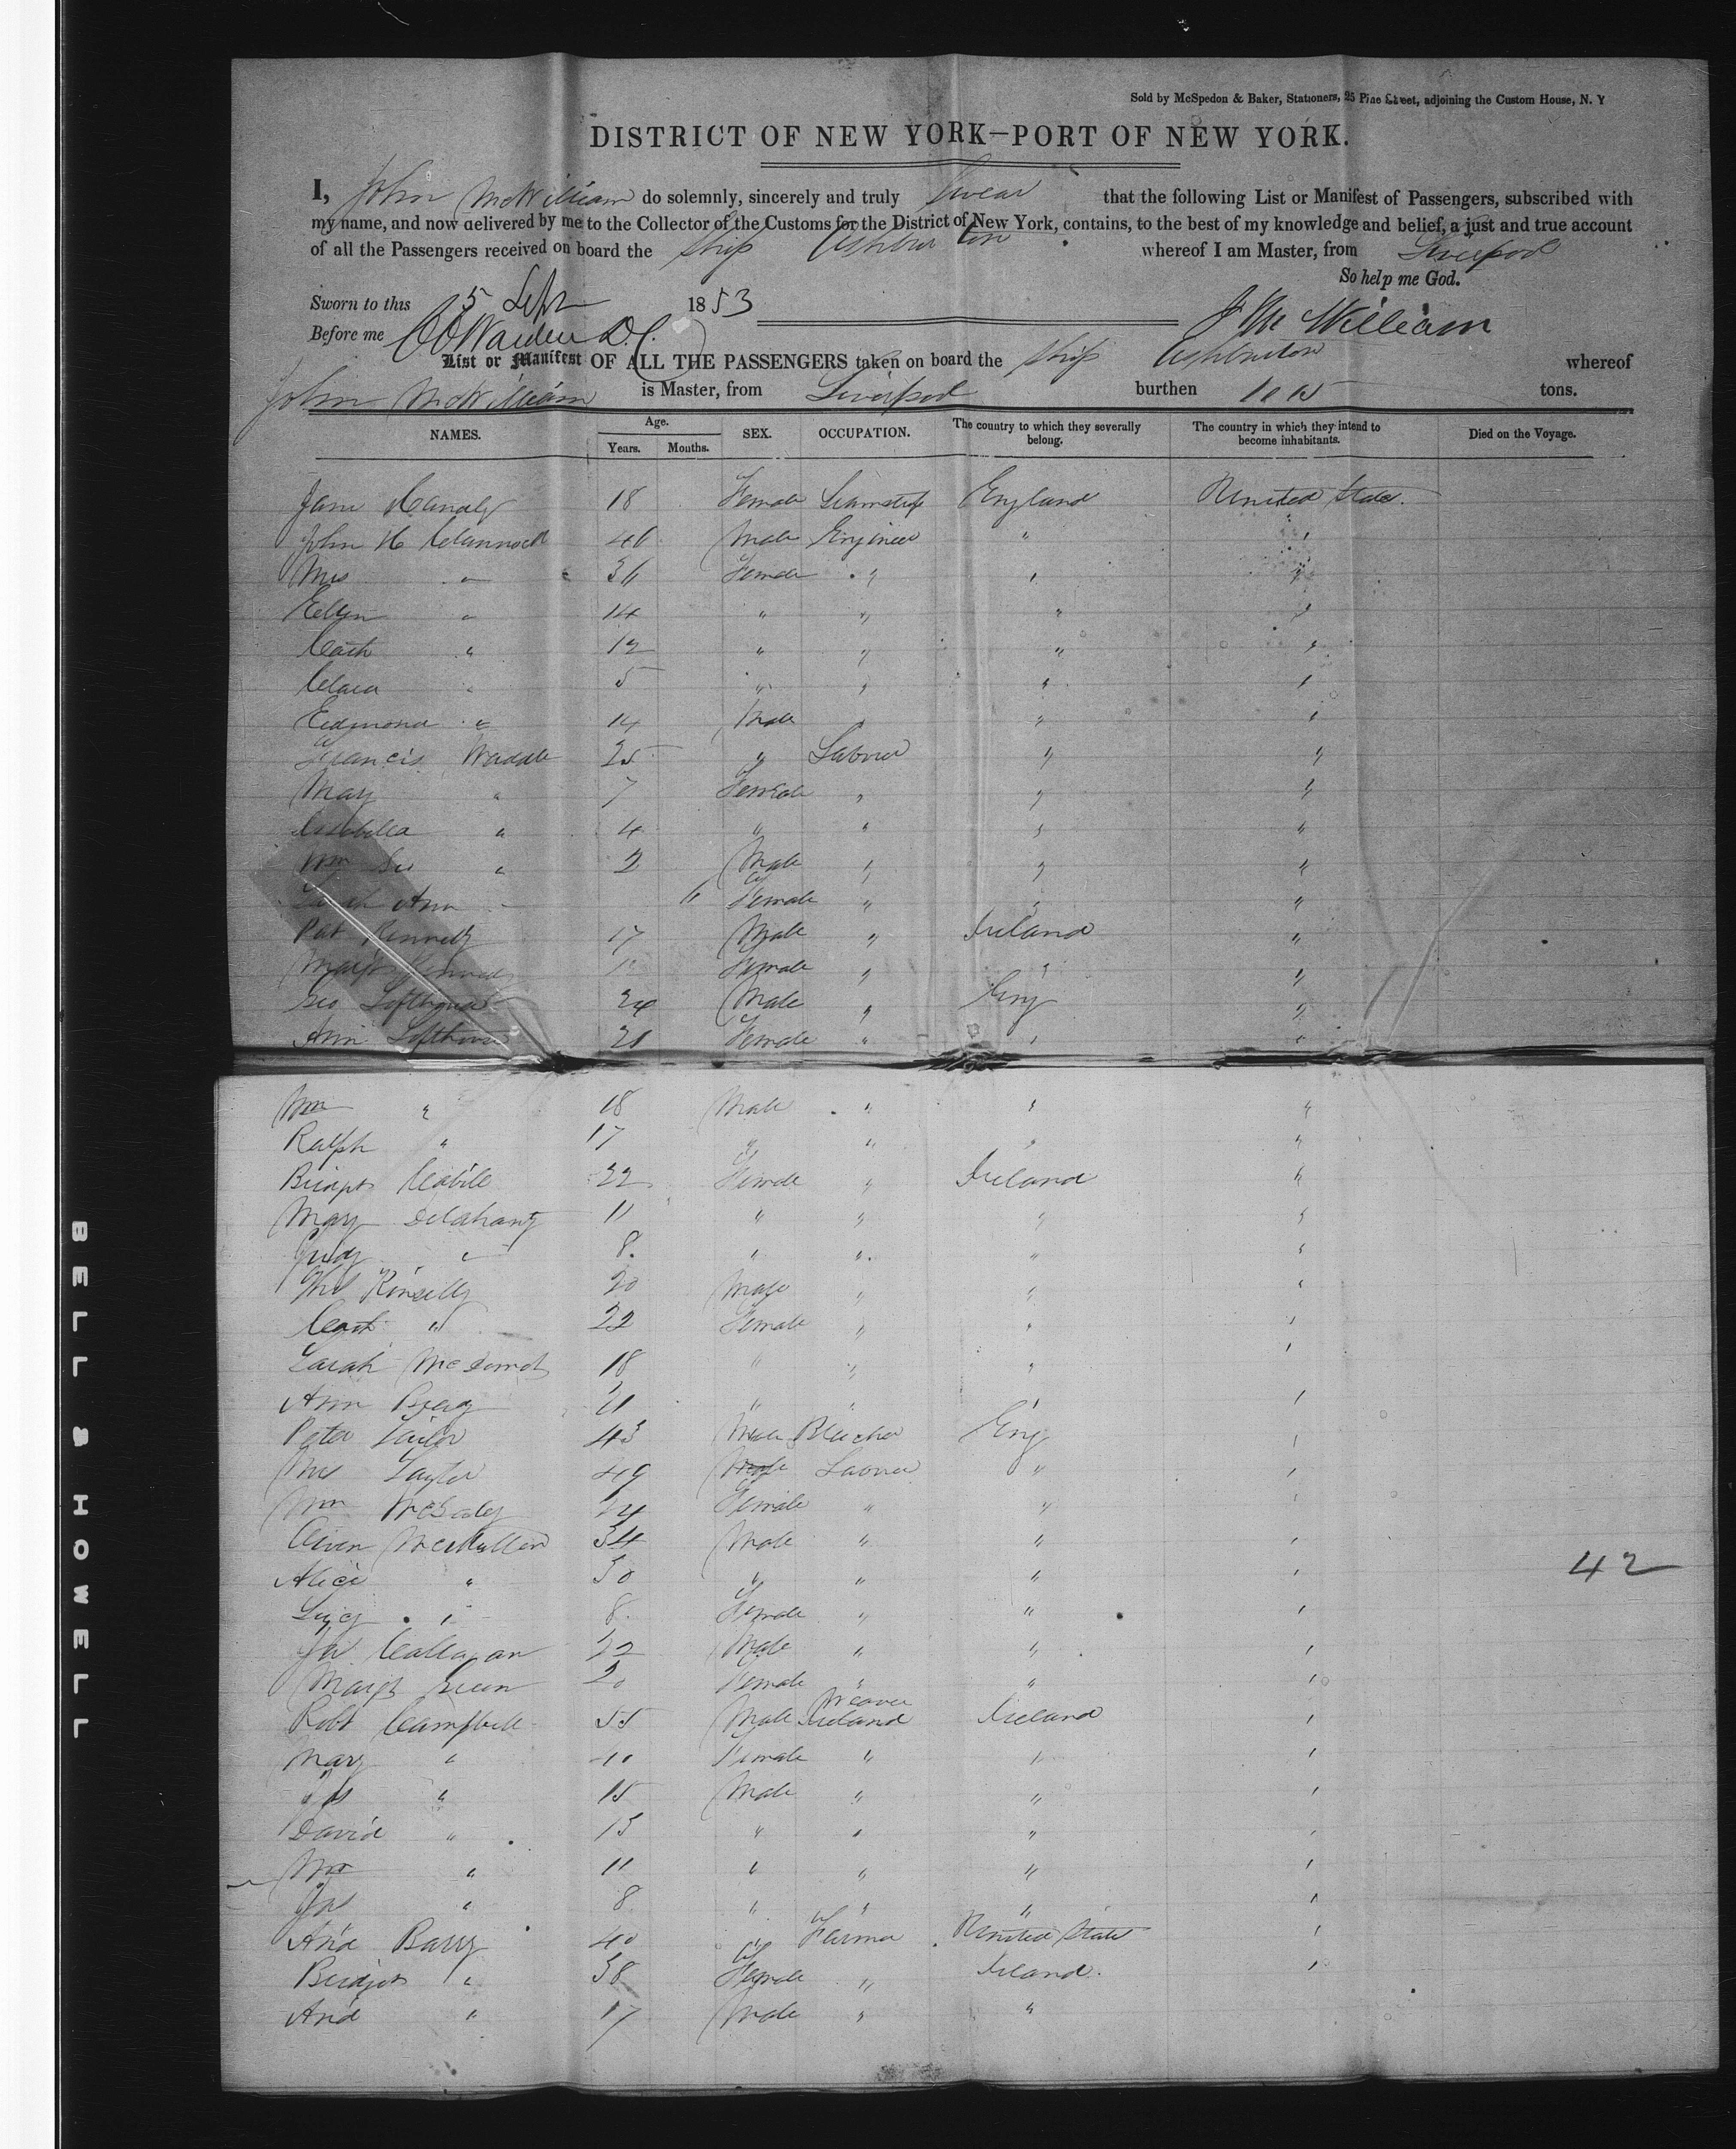 Sold by McSpedon & Baker, Stationers, 25 Pine Street, adjoining the Custom House, N. Y
DISTRICT OF NEW YORK—PORT OF NEW YORK.
I, John McWilliam do solemnly, sincerely and truly swear that the following List or Manifest of Passengers, subscribed with
my name, and now delivered by me to the Collector of the Customs for the District of New York, contains, to the best of my knowledge and belief, a just and true account
of all the Passengers received on board the Ship Ashburton whereof I am Master, from Liverpool
So help me God.
Sworn to this 5 Sept 1853
J Mc William
Before me
List or Manifest OF ALL THE PASSENGERS taken on board the Ship Ashburton whereof
John McWilliam is Master, from Liverpool burthen 1015 tons.
NAMES. Age. Years. Months. SEX. OCCUPATION. The country to which they severally belong. The country in which they intend to become inhabitants. Died on the Voyage.
Jane 18 Female Seamstress England United States.
John H 40 Male Engineer " "
Mrs " 36 Female " " "
Ellen " 14 " " " "
Cath " 12 " " " "
Clara " 5 " " " "
Edmond " 14 Male " " "
Francis Waddle 25 " Labour " "
Mary " 7 Female " " "
Isabella " 4 " " " "
Wm " 2 Male " " "
Ann " 11 Female " " "
Pat Kennedy 17 Male " Ireland "
Margt Kennedy Female " " "
Geo Lofthouse 24 Male " Eng "
Ann Lofthouse 21 Female " " "
Wm " 18 Male " " "
Ralph " 17 " " " "
Bridgt 22 Female " Ireland "
Mary Delahanty 11 " " " "
Judy " 8 " " " "
Thos Kinselly 20 Male " " "
Cath " 22 Female " " "
Sarah 18 " " " "
Ann 21 " " " "
Peter Tailor 43 Male Bleicher Eng "
Mrs Taylor 49 Male Laborer " "
Wm 24 Female " " "
Owen McMullen 34 Male " " "
Alice " 30 " " " "
Lucy " 8 Female " " "
Callagan 22 Male " " "
Margt 20 Female " " "
Weaver
Robt Campbell 55 Male Ireland Ireland "
Mary " 40 Female " " "
Js " 15 Male " " "
David " 13 " " " "
42
Wm " 11 " " " "
Jos " 8 " " " "
And Barry 40 " Farmer United States "
Bridget " 38 Female " Ireland. "
And " 17 Male " "
BELL & HOWELL